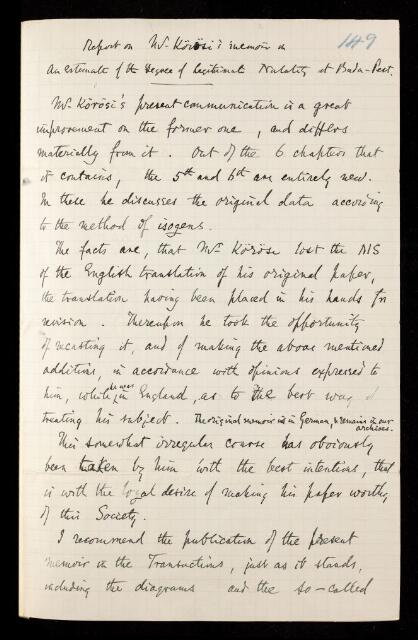 149
Report on Mr. Körösi's memoir on
An estimate of the Degree of Legitimate Natality at Buda-Pest.
Mr. Körösi's present communication is a great
improvement on the former one, and differs
materially from it. Out of the 6 chapters that
it contains, the 5th and 6th are entirely new.
In these he discusses the original data according
to the method of isogens.
The facts are, that Mr. Körösi lost the MS
of the English translation of his original paper,
the translation having been placed in his hands for
revision. Thereupon he took the opportunity
of recasting it, and of making the above mentioned
additions, in accordance with opinions expressed to
him, while he was in England, as to the best way of
treating his subject. The original memoir is in German, & remains in our
archives.
This somewhat irregular course has obviously
been taken by him with the best intentions, that
is with the loyal desire of making his paper worthy
of this Society.
I recommend the publication of the present
memoir in the Transactions, just as it stands,
including the diagrams and the so-called